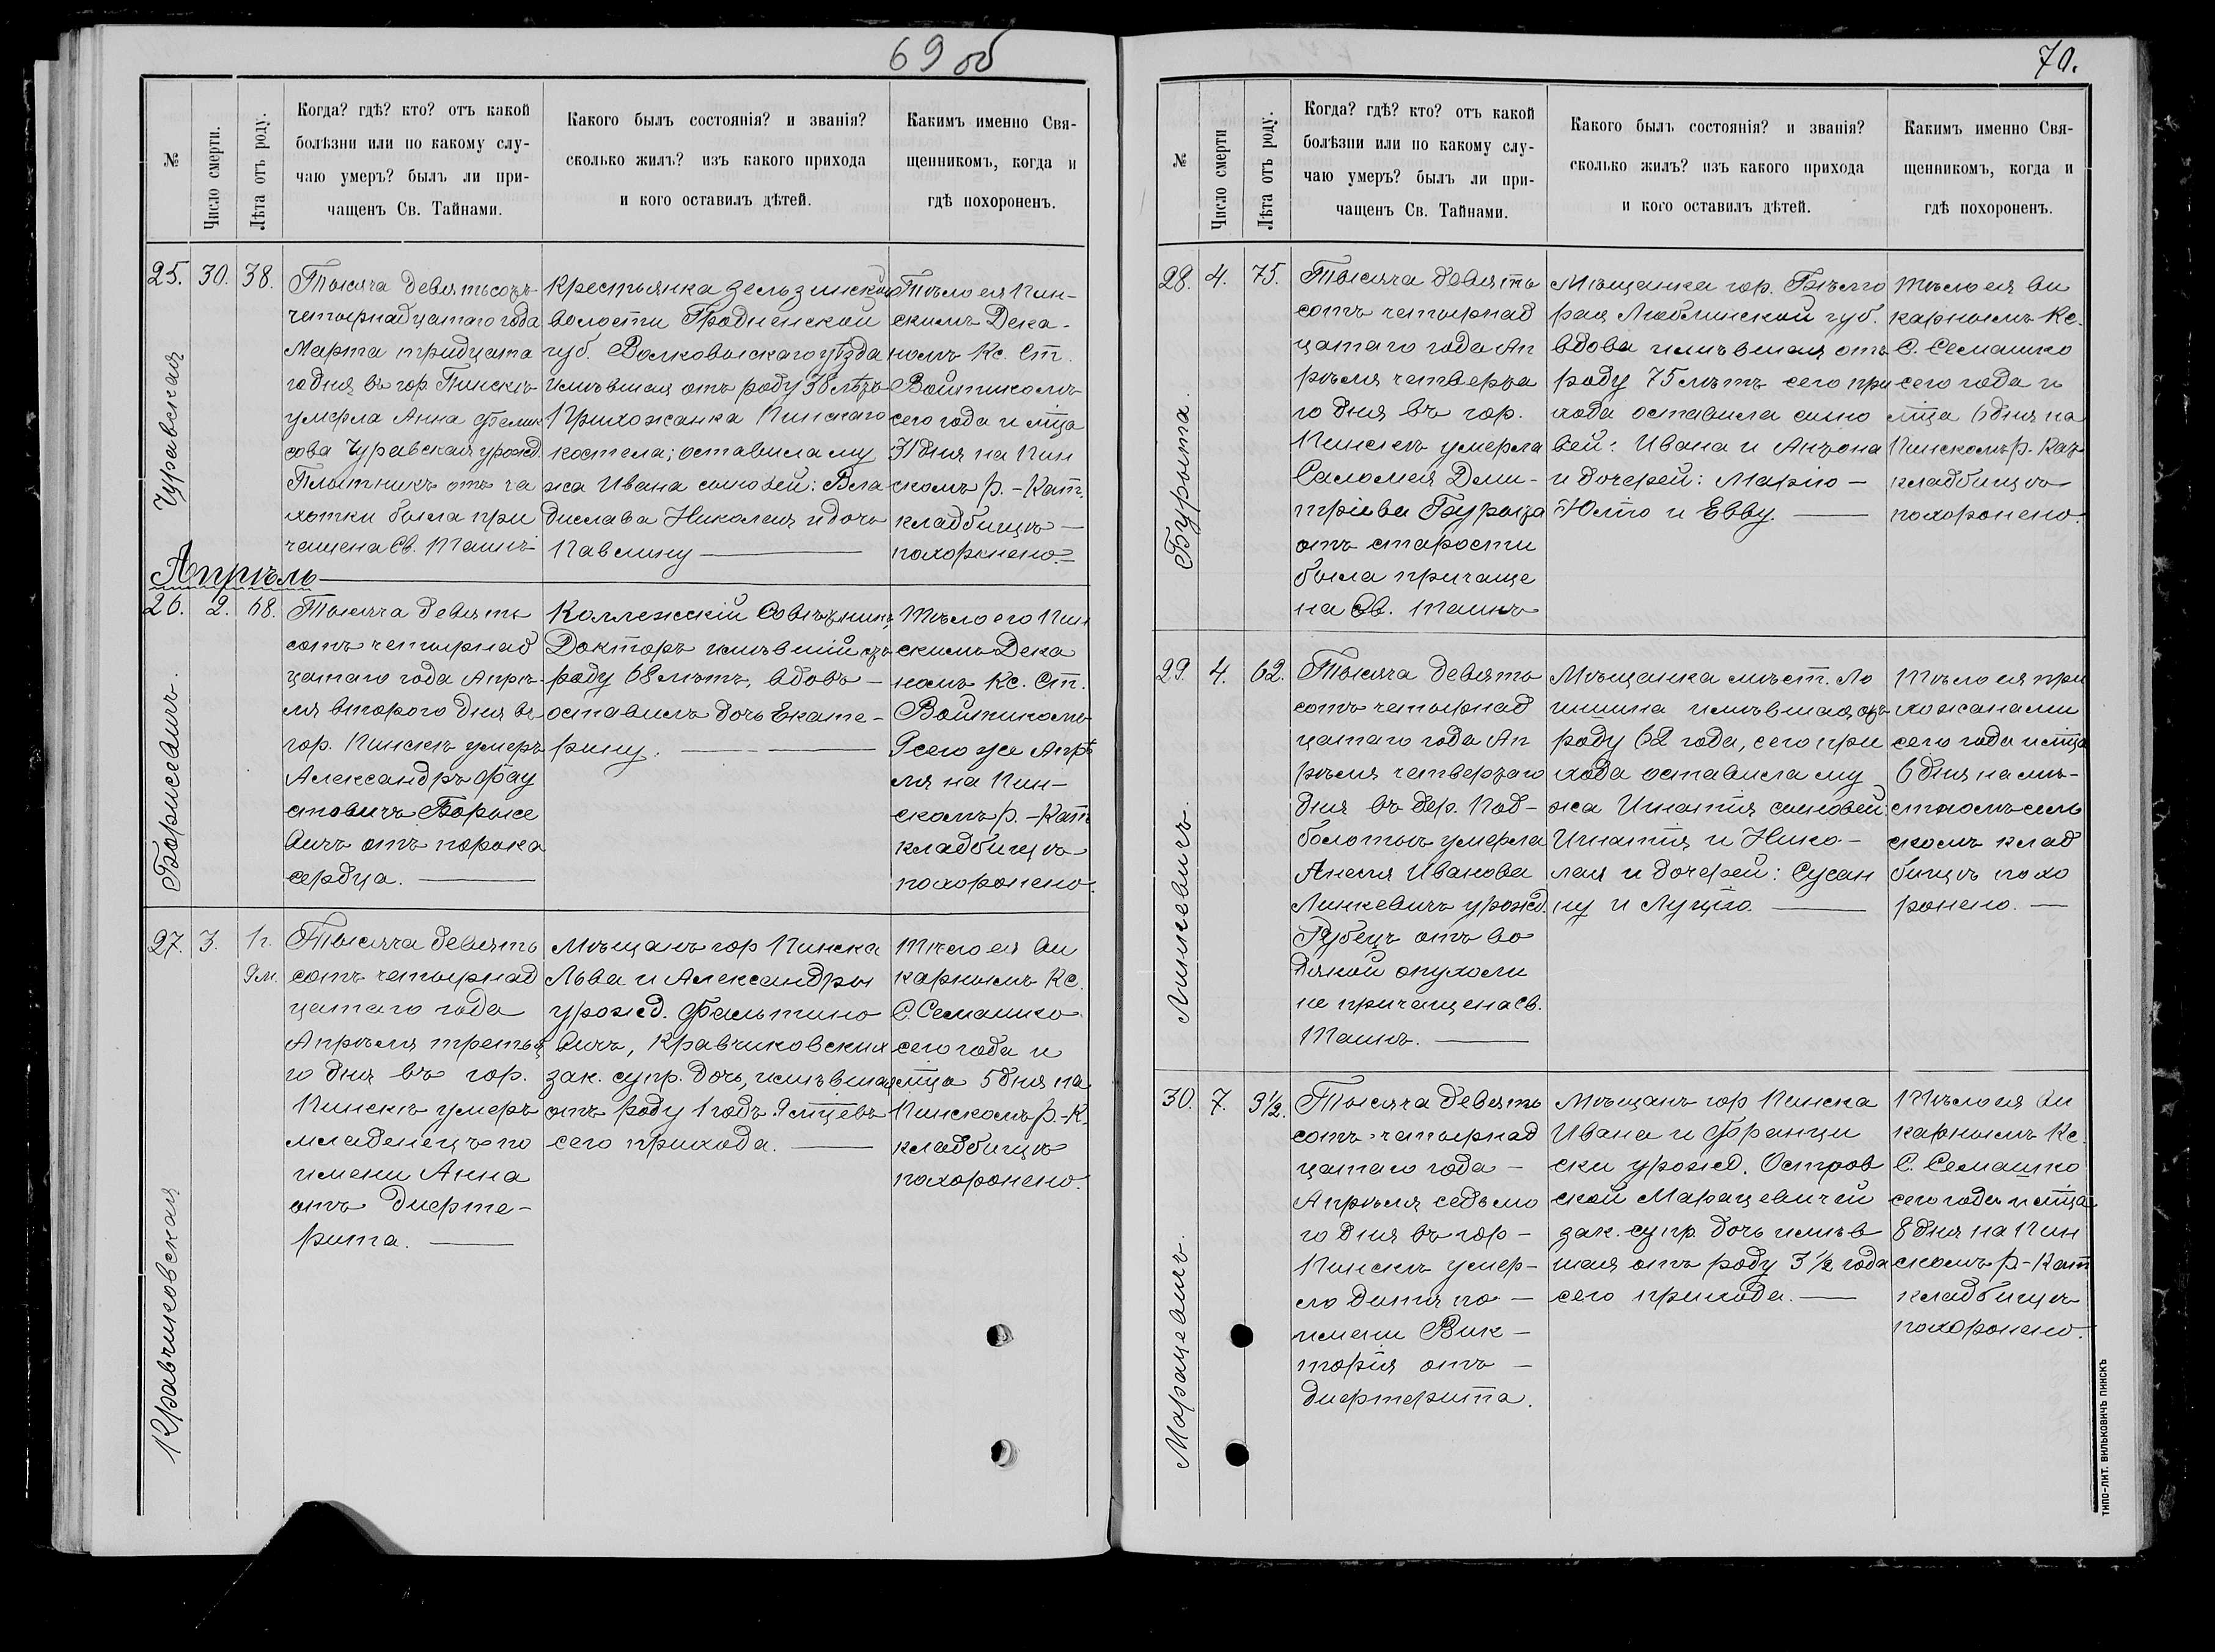 69 об
№
Число смерти.
Лѣта отъ роду.
Когда? гдѣ? кто? отъ какой
болѣзни или по какому слу-
чаю умеръ? былъ ли при-
чащенъ Св. Тайнами.
Какого былъ состоянія? и званія?
сколько жилъ? изъ какого прихода
и кого оставилъ дѣтей.
Какимъ именно Свя-
щенникомъ, когда и
гдѣ похороненъ.
25. 30. 38.
Чуравская
Тысяча девятьсотъ
четырнадцатаго года
Марта тридцата
го дня въ гор. Пинскѣ
умерла Анна Феликс
сова Чуравская урожд.
Плотникъ отъ ча
хотки была при
чащена Св. Таинъ
Крестьянка Зельзинской
волости Гродненской
губ. Волковыскаго уѣзда
имѣвшая отъ роду 38 лѣтъ
Прихожанка Пинскаго
костела; оставила му
жа Ивана сыновей: Вла
дислава Николая и дочь
Павлину
Тѣло ея Пин-
скимъ Дека-
номъ Кс. Ст.
Войтикомъ
сего года и мѣца
31 дня на Пин
скомъ Р.-Кат.
кладбищѣ
похоронено.
Апрѣль
26. 2. 68.
Борисевичъ.
Тысяча девять
сотъ четырнад
цатаго года Апрѣ-
ля второго дня въ
гор. Пинскѣ умеръ
Александръ Фау
стовичъ Борисе
вичъ отъ порока
сердца.
Коллежскій Совѣтникъ,
Докторъ имѣвшій отъ
роду 68 лѣтъ, вдовъ -
оставилъ дочь Екате-
рину.
Тѣло его Пин
скимъ Дека
номъ Кс. Ст.
Войтикомъ
9 сего же Апрѣ
ля на Пин-
скомъ Р.-Кат
кладбищѣ
похоронено.
27. 3. 1 г.
9 м.
Кравчиковская
Тысяча девять
сотъ четырнад
цатаго года
Апрѣля третья
го дня въ гор.
Пинскѣ умеръ
младенецъ по
имени Анна
отъ дифте-
рита.
Мѣщанъ гор Пинска
Льва и Александры
урожд. Фальтино
вичъ, Кравчиковскихъ
зак. супр. дочь, имѣвшая
отъ роду 1 годъ 9 мѣцевъ
сего прихода.
Тѣло ея ви
карнымъ Кс.
С. Семашко
сего года и
мѣца 5 дня на
Пинскомъ Р.-К.
кладбищѣ
похоронено.
70.
№
Число смерти
Лѣта отъ роду.
Когда? гдѣ? кто? отъ какой
болѣзни или по какому слу-
чаю умеръ? былъ ли при-
чащенъ Св. Тайнами.
Какого былъ состоянія? и званія?
сколько жилъ? изъ какого прихода
и кого оставилъ дѣтей.
Какимъ именно Свя-
щенникомъ, когда и
гдѣ похороненъ.
28. 4. 75.
Бурыта.
Тысяча девять
сотъ четырнад
цатаго года Ап
рѣля четверта
го дня въ гор.
Пинскѣ умерла
Саломея Дми-
тріева Бурыта
отъ старости
была причаще
на Св. Таинъ
Мѣщанка гор. Бѣлго
рая Люблинской губ.
вдова имѣвшая отъ
роду 75 лѣтъ сего при
хода оставила сыно
вей: Ивана и Антона
и дочерей: Марію -
Юлію и Евву.
Тѣло ея ви
карнымъ Кс.
С. Семашко
сего года и
мѣца 6 дня на
Пинскомъ Р. Кат
кладбищѣ
похоронено.
29. 4. 62.
Линкевичъ.
Тысяча девять
сотъ четырнад
цатаго года Ап
рѣля четвертаго
дня въ дер. Под-
болотьѣ умерла
Анеля Иванова
Линкевичъ урожд.
Рубецъ отъ во
дяной опухоли
не причащена Св.
Таинъ.
Мѣщанка мѣст. Ло
гишина имѣвшая отъ
роду 62 года, сего при
хода оставила му
жа Игнатія сыновей:
Игнатія и Нико-
лая и дочерей: Сусан
ну и Луцію.
Тѣло ея при
хожанами
сего года и мѣца
6 дня на мѣ-
стномъ сель
скомъ клад
бищѣ похо
ронено.
30. 7. 3½.
Марацевичъ.
Тысяча девять
сотъ четырнад
цатаго года -
Апрѣля седьмо
го дня въ гор -
Пинскѣ умер-
ло дитя по -
имени Вик-
торія отъ -
дифтерита.
Мѣщанъ гор Пинска
Ивана и Францис
ски урожд. Остров
ской Марацевичей
зак. супр. дочь имѣв
шая отъ роду 3 ½ года
сего прихода.
Тѣло ея ви
карнымъ Кс.
С. Семашко
сего года и мѣца
8 дня на Пин
скомъ Р-Кат
кладбищѣ
похоронено.
ТИПО-ЛИТ. ВИЛЬКОВИЧЪ ПИНСКЪ